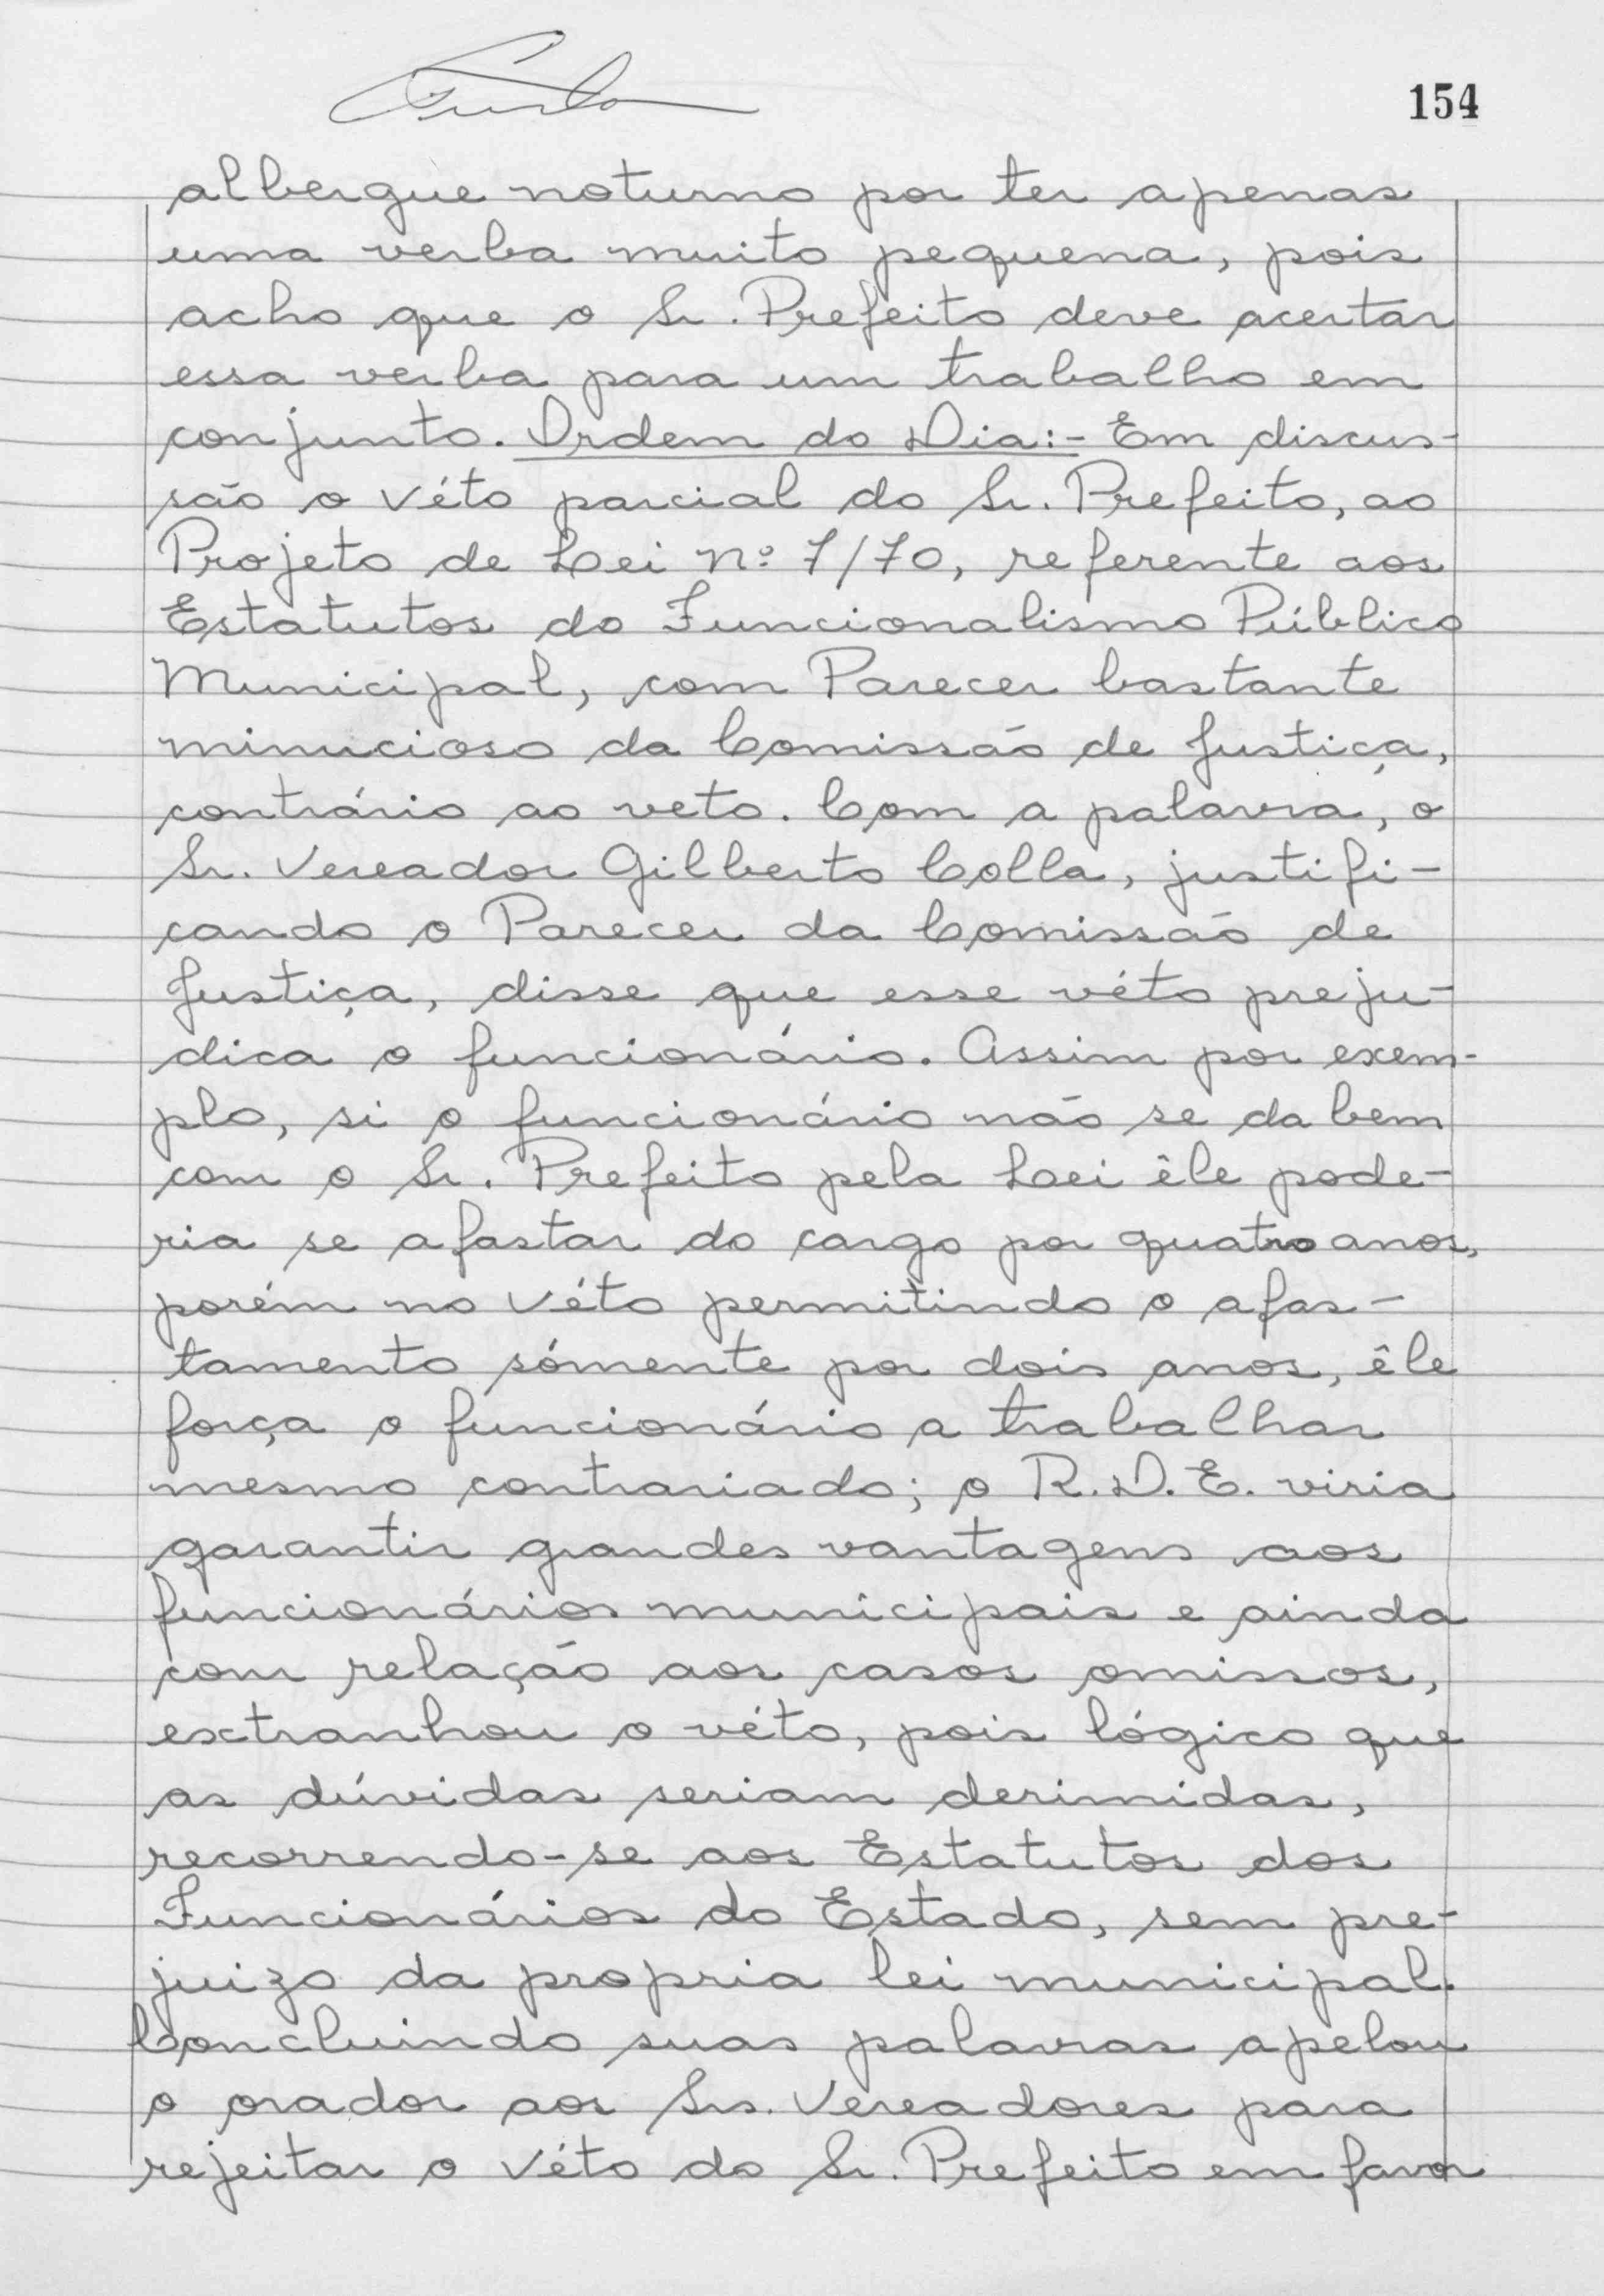 154
albergue noturno por ter apenas
uma verba muito pequena, pois
acho que o Sr. Prefeito deve acertar
essa verba para um trabalho em
conjunto. Ordem do Dia:- Em discus-
são o véto parcial do Sr. Prefeito, ao
Projeto de Lei nº 7/70, referente aos
Estatutos do Funcionalismo Público
Municipal, com Parecer bastante
minucioso da Comissão de Justiça,
contrário ao veto. Com a palavra, o
Sr. Vereador Gilberto Colla, justifi-
cando o Parecer da Comissão de
Justiça, disse que esse véto preju-
dica o funcionário. Assim por exem-
plo, si o funcionário não se da bem
com o Sr. Prefeito pela Lei êle pode-
ria se afastar do cargo por quatro anos,
porém no véto permitindo o afas-
tamento sómente por dois anos, êle
força o funcionário a trabalhar
mesmo contrariado; o R.D.E. viria
garantir grandes vantagens aos
funcionários municipais e ainda
com relação aos casos omissos,
extranhou o véto, pois lógico que
as dúvidas seriam derimidas,
recorrendo-se aos Estatutos dos
Funcionários do Estado, sem pre-
juizo da propria lei municipal.
Concluindo suas palavras apelou
o orador aos Srs. Vereadores para
rejeitar o véto do Sr. Prefeito em favor